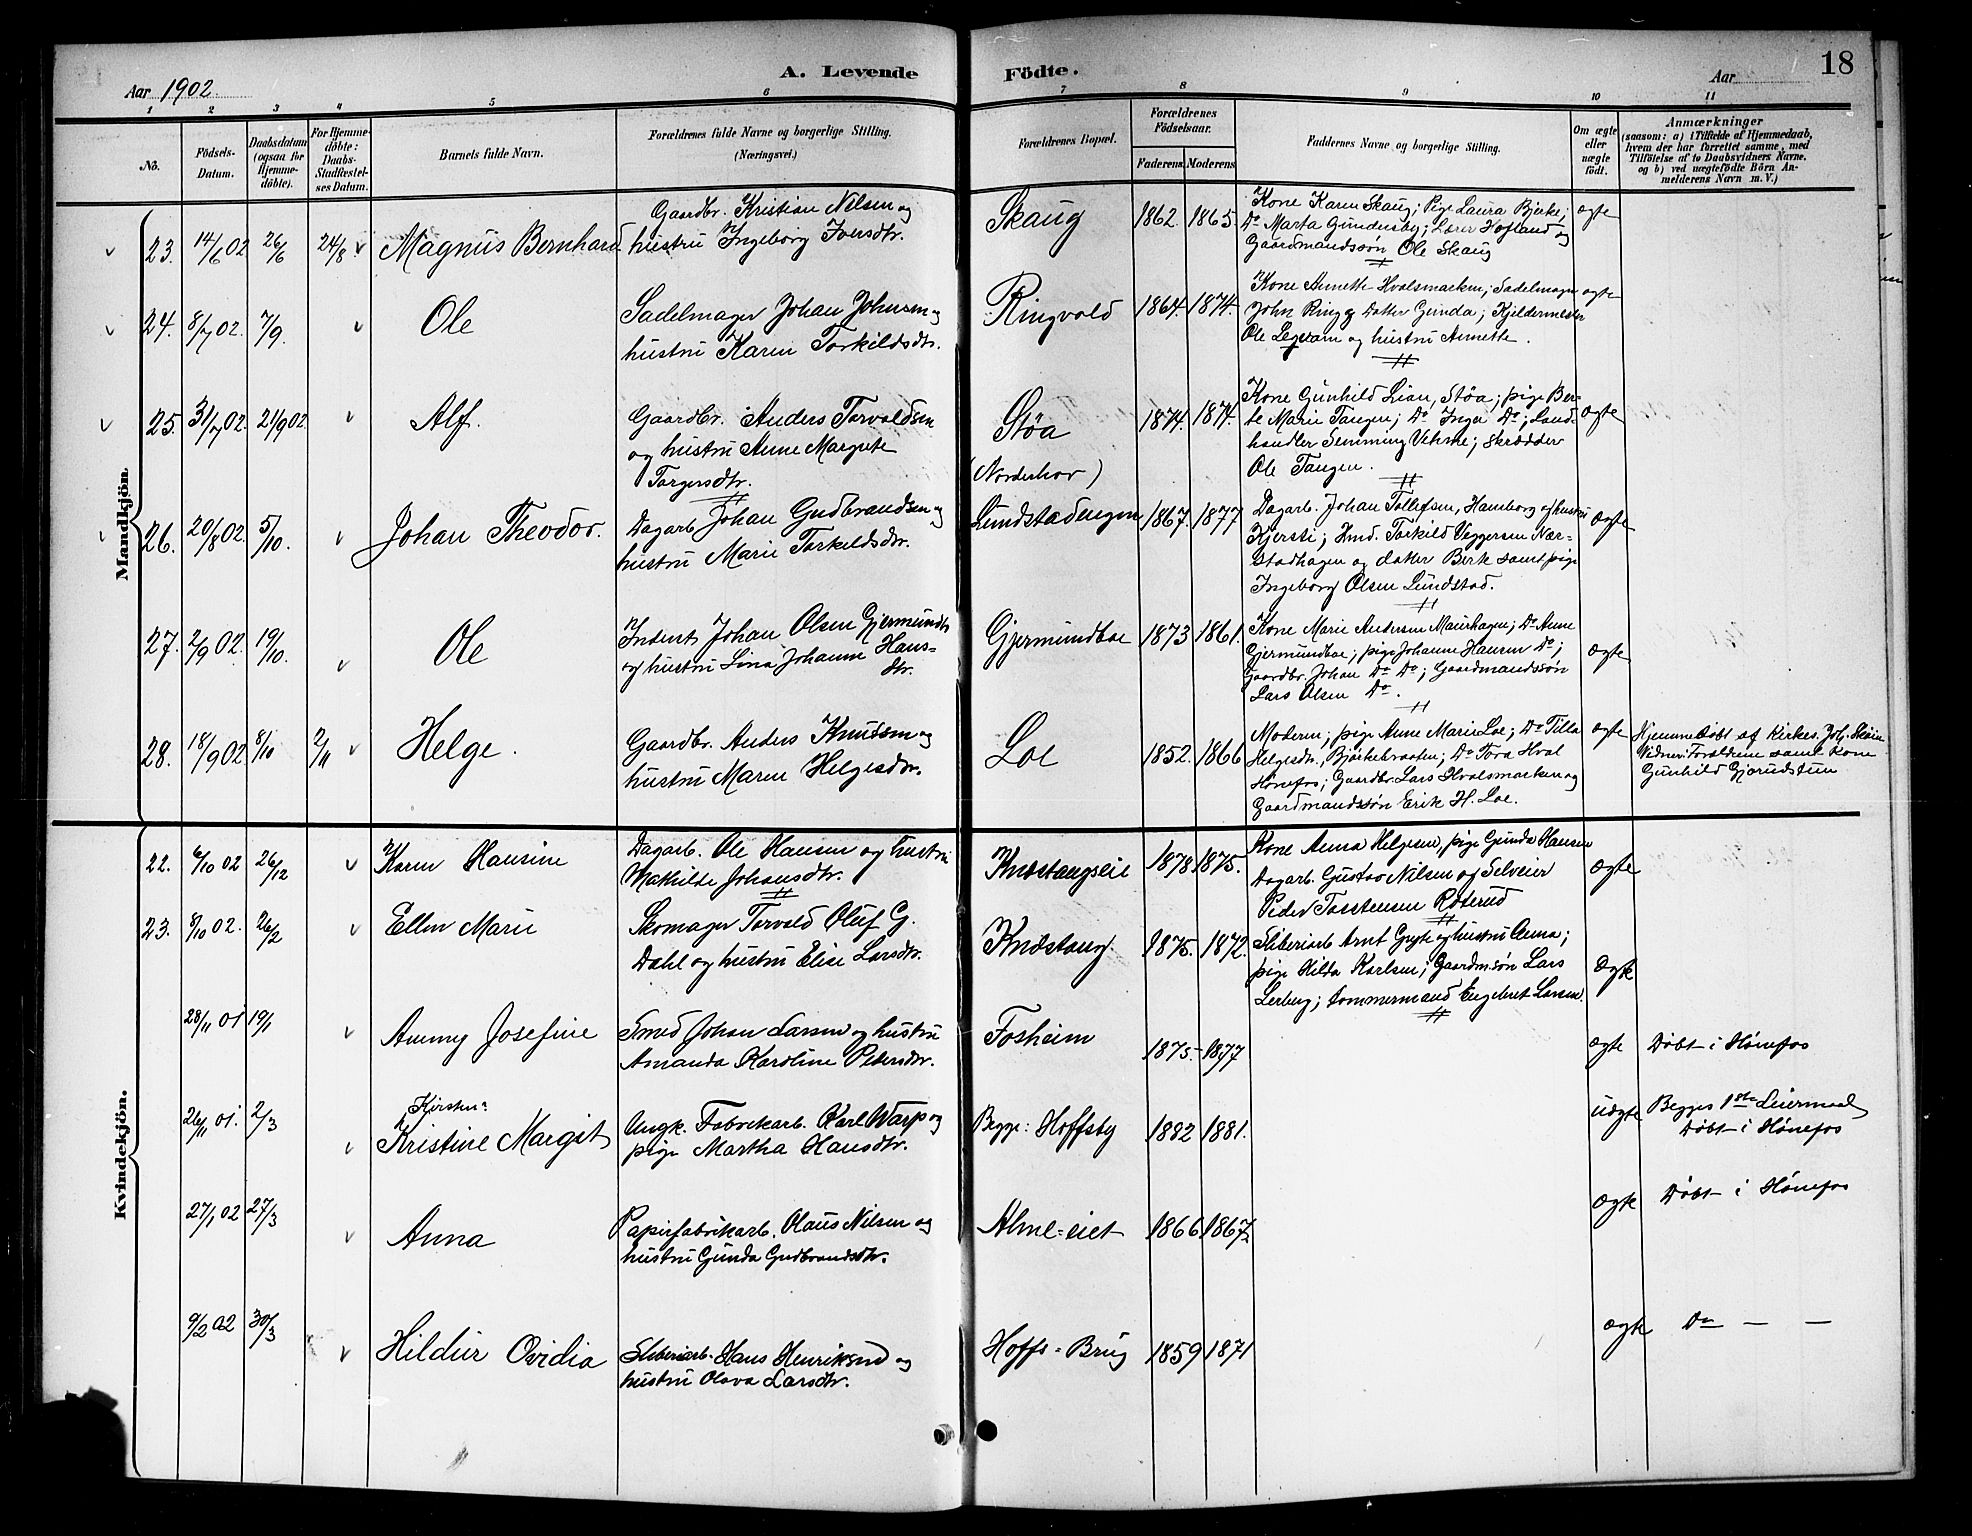 Aar 1902.
A. Levende
Födte.
Aar
18
1 2 3 4 5 6 7 8 9 10 11
No.
Födsels-
Datum.
Daabsdatum
(ogsaa for
Hjemme-
döbte).
For Hjemme-
döbte:
Daabs-
Stadfæstel-
ses Datum.
Barnets fulde Navn.
Forældrenes fulde Navne og borgerlige Stilling.
(Næringsvei.)
Forældrenes Bopæl.
Forældrenes
Födselsaar.
Faderens. Moderens.
Faddernes Navne og borgerlige Stilling.
Om ægte
eller
uægte
födt.
Anmærkninger
(saasom: a) i Tilfælde af Hjemmedaab,
hvem der har forrettet samme, med
Tilföielse af to Daabsvidners Navne,
og b) ved uægtefödte Börn An-
melderens Navn m. V.)
Mandkjön.
23. 14/6 02 26/6 24/8 Magnus Bernhard
Gaardbr. Kristian Nilsen og
hustru Ingeborg Iversdtr.
Skaug 1862. 1865.
Kone Karen Skaug; Pige Laura Bjerke;
Do Marta Gundersby; Lærer Hofland og
Gaardmandssøn Ole Skaug
ægte
24. 8/7 02. 7/9. Ole
Sadelmager Johan Johnsen og
hustru Karen Torkildsdtr.
Ringvold 1864. 1874.
Kone Annette Hvalsmarken, Sadelmager
John Ring & Datter Gunda; Kjeldermester
Ole Legvam og hustru Annette.
ægte
25. 31/7 02. 21/9 02. Alf.
Gaardbr. Anders Torvaldsen
og hustru Anne Margrete
Torgersdtr.
Støa
(Norderhov)
1874. 1874.
Kone Gunhild Lian, Støa; pige Ber-
te Marie Tangen; Do Inga Do; Land-
handler Semming Vehme; skrædder
Ole Tangen.
ægte
26. 20/8 02. 5/10. Johan Theodor.
Dagarb. Johan Gudbrandsen og
hustru Marie Torkildsdtr.
Lundstadengen 1867. 1877.
Dagarb. Johan Tollefsen, Hamborg og hustru
Kjersti; Hmd. Torkild Veggersen Nær-
stadhagen og datter Berte samt pige
Ingeborg Olsen Lundstad.
ægte
27. 2/9 02. 19/10. Ole
Inderst Johan Olsen Gjermundbo
og hustru Lina Johanne Hans-
dtr.
Gjermundboe 1873 1861.
Kone Marie Andersen Maierhagen; Do Anne
Gjermundboe; pige Johanne Hansen Do;
Gaardbr. Johan Do Do; Gaardmandssøn
Lars Olsen Do.
ægte
28. 18/9 02 8/10 2/11 Helge.
Gaardbr. Anders Knutsen og
hustru Maren Helgesdtr.
Loe 1852. 1866
Moderen; pige Anne Marie Loe; Do Tilla
Helgesdtr. Bjørkebraaten; Do Tora Hval
Hønefos; Gaardbr. Lars Hvalsmarken og
Gaardmandssøn Erik H. Loe.
ægte
Hjemmedøbt af Kirkes. Joh. Skøien
Vidner: Forældrene samt Kone
Gunhild Gjerudstun
Kvindekjön.
22. 6/10 02 26/12 Karen Hansine
Dagarb. Ole Hansen og hustru
Mathilde Johansdtr.
Knæstangseie 1878. 1875.
Kone Anna Helgesen, pige Gunda Hansen
Dagarb. Gustav Nilsen og Selveier
Peder Torstensen Røterud
ægte
23. 8/10 02. 26/2 Ellen Marie
Skomager Torvald Oluf G.
Dahl og hustru Elise Larsdtr.
Knæstang. 1875. 1872.
Sliberiarb. Arnt Gryte og hustru Anna;
pige Hilda Karlsen; Gaardm.søn Lars
Lerberg; tommermand Engebret Larsen.
ægte
28/11 01 19/1 Ammy Josefine
Smed Johan Larsen og hustru
Amanda Karoline Pedersdtr.
Fosheim 1875. 1877
ægte Døbt i Hønefos
26/11 01. 2/3 Kirsten
Kristine Margit
Ungk. Fabrikarb. Karl Warp og
pige Martha Hansdtr.
Begge: Hoffsby 1882 1881.
uægte Begges 1ste Leiermaal
Døbt i Hønefos
27/1 02 27/3 Anna
Papirfabrikarb. Olaus Nilsen og
hustru Gunda Gudbrandsdtr.
Alme-eiet 1866 1867
ægte Døbt i Hønefos
9/2 02 30/3 Hildur Ovidia
Sliberiarb. Hans Henriksen og
hustru Olava Larsdtr.
Hoffs-Brug 1859 1871
ægte Do — —